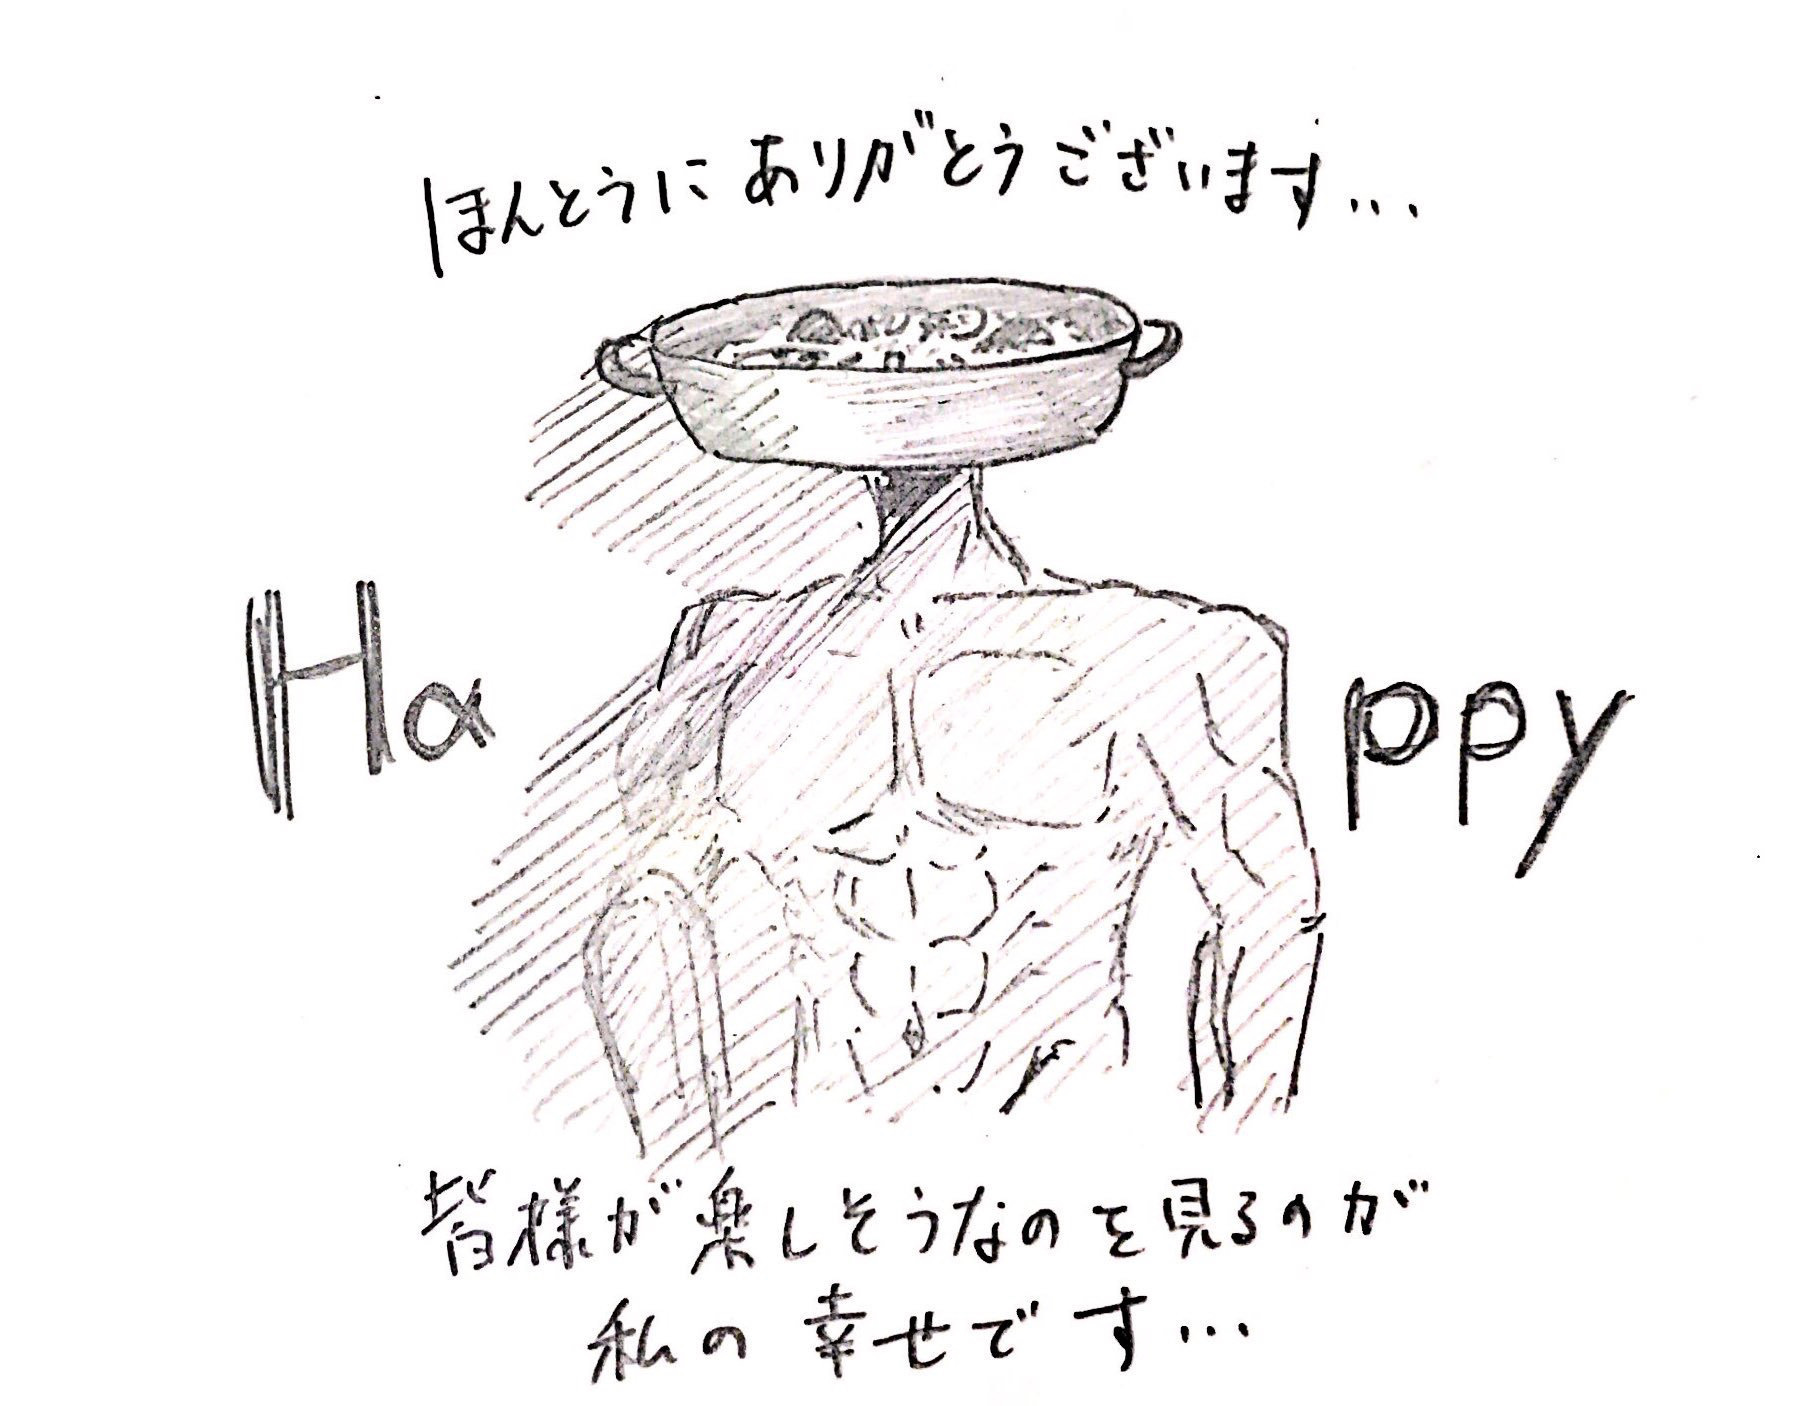 ほんとうにありがとうございます...
Happy
皆様が楽しそうなのを見るのが
私の幸せです...